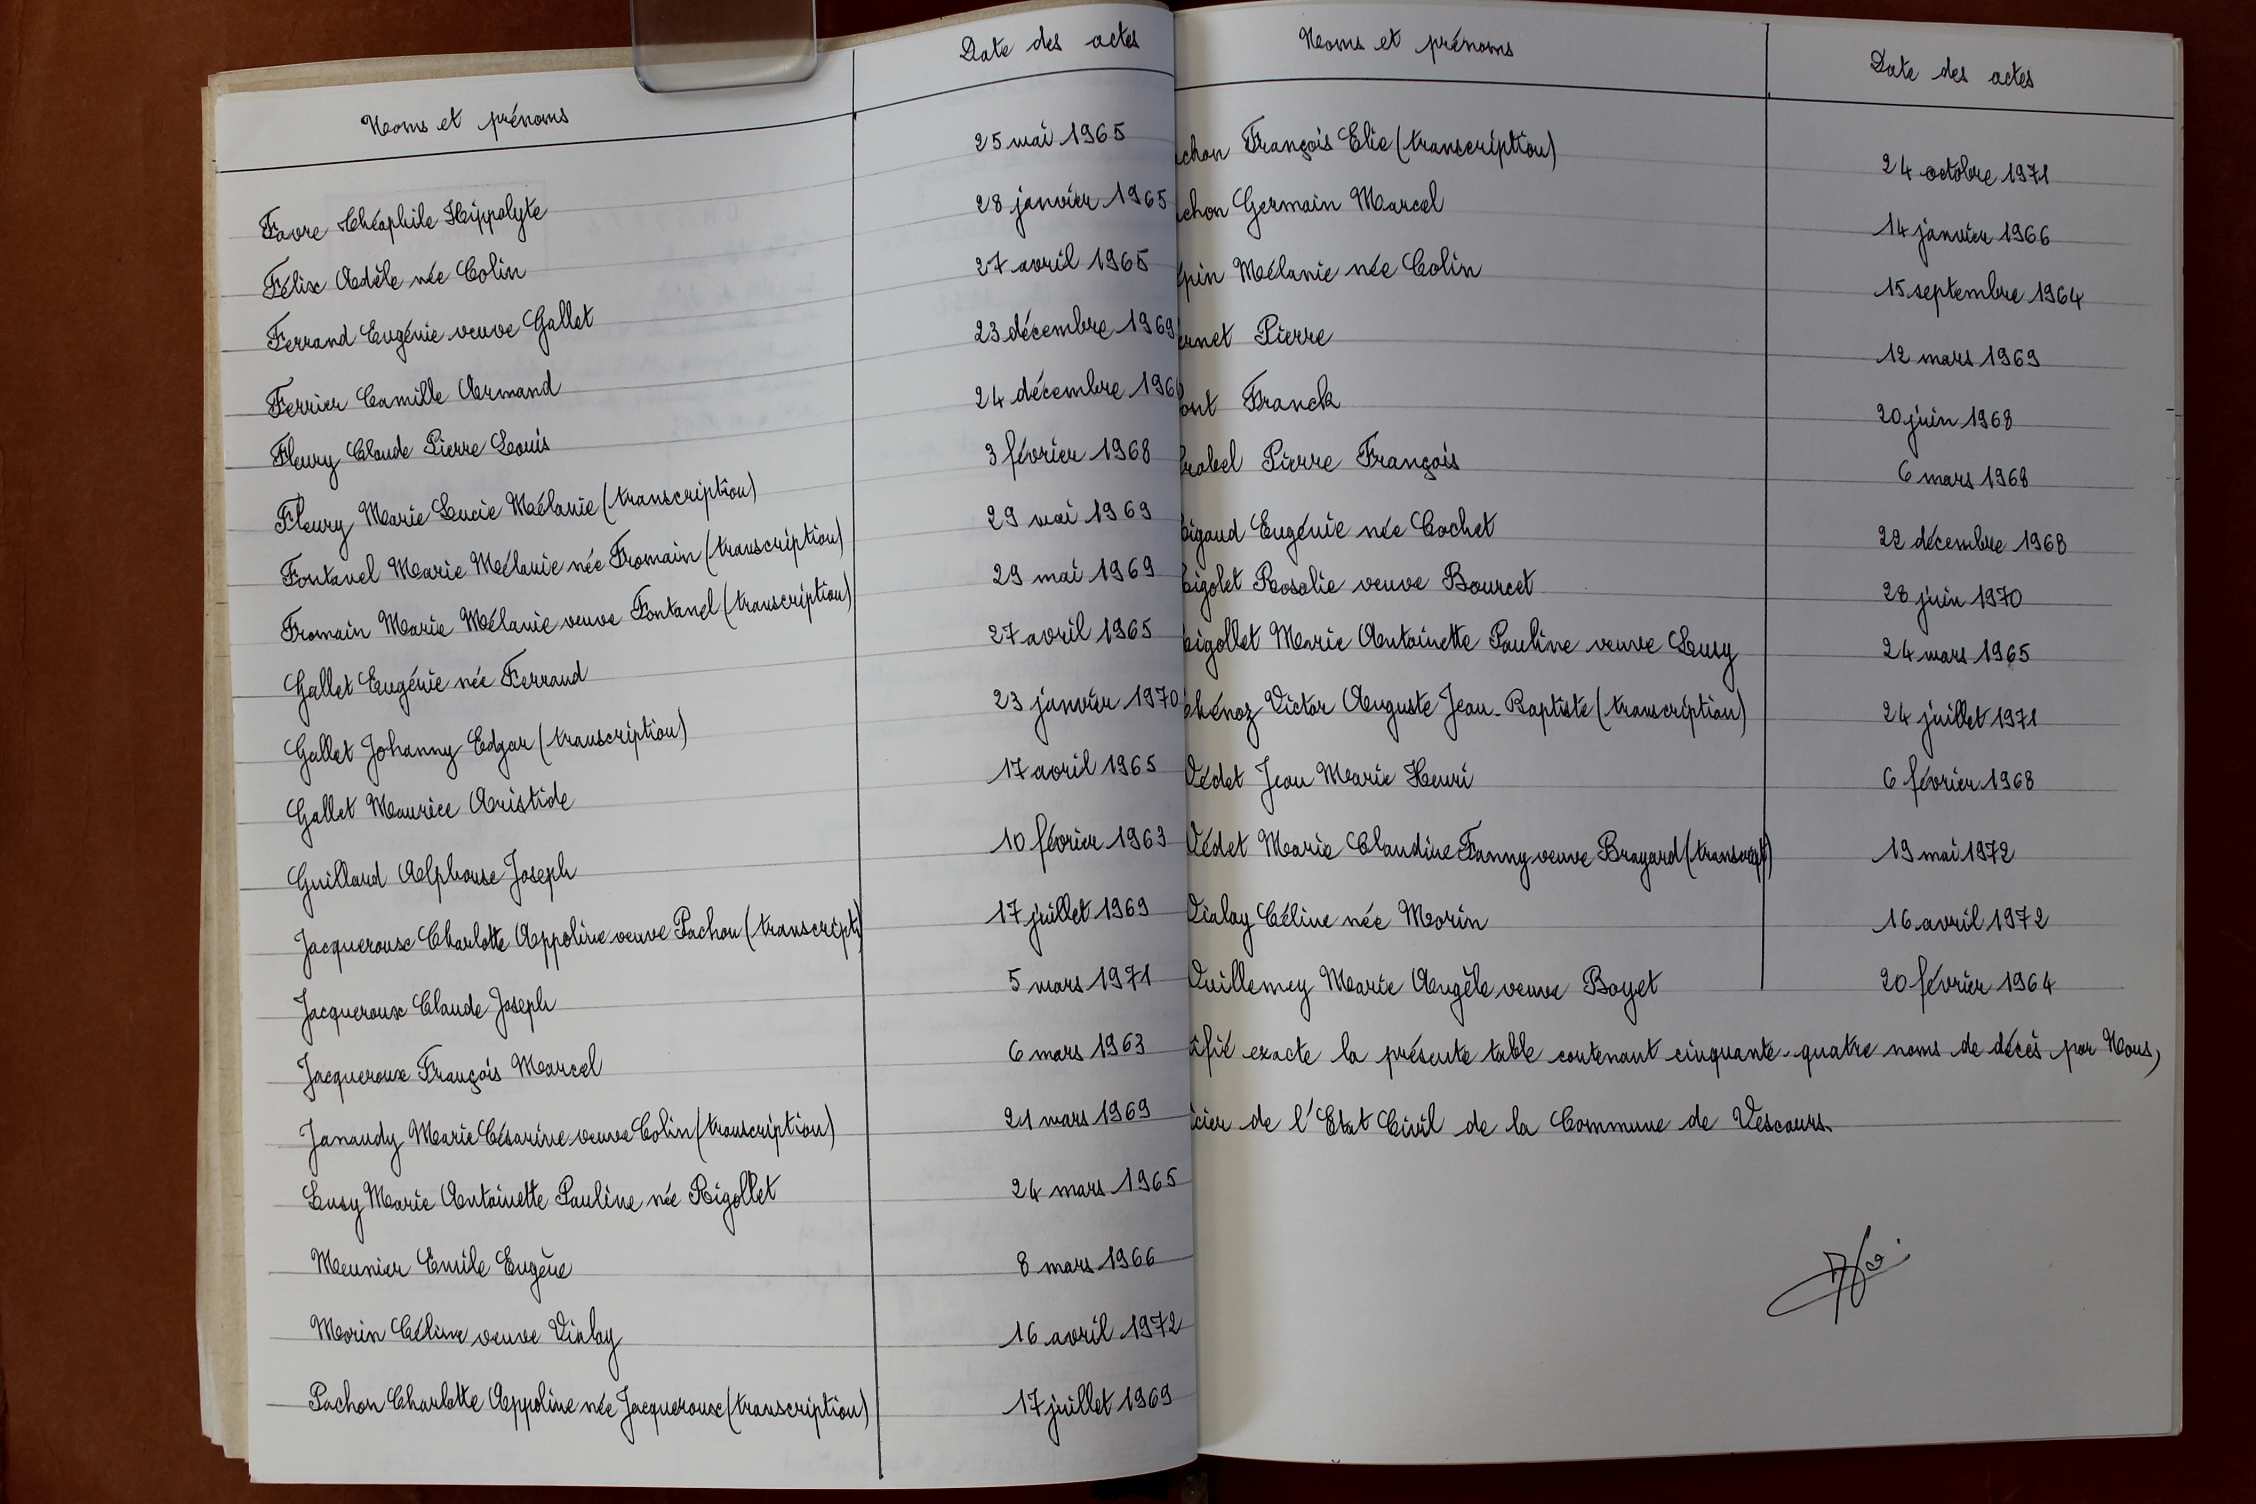 Noms et prénoms Date des actes
Favre Théophile Hippolyte 25 mai 1965
Félix Adèle née Colin 28 janvier 1965
Ferrand Eugénie veuve Gallet 27 avril 1965
Ferrier Camille Armand 23 décembre 1969
Fleury Claude Pierre Louis 24 décembre
Fleury Marie Lucie Mélanie (transcription) 3 février 1968
Fontanel Marie Mélanie née Fromain (transcription) 29 mai 1969
Fromain Marie Mélanie veuve Fontanel (transcription) 29 mai 1969
Gallet Eugénie née Ferrand 27 avril 1965
Gallet Johanny Edgar (transcription) 23 janvier 1970
Gallet Maurice Aristide 17 avril 1965
Guillard Alphonse Joseph 10 février 1963
Jacqueroux Charlotte Appoline veuve Pachon (transcript) 17 juillet 1969
Jacqueroux Claude Joseph 5 mars 1971
Jacqueroux François Marcel 6 mars 1963
Janaudy Marie Césarine veuve Colin (transcription) 21 mars 1969
Lusy Marie Antoinette Pauline née Rigollet 24 mars 1965
Meunier Emile Eugène 8 mars 1966
Morin Céline veuve Vialay 16 avril 1972
Pachon Charlotte Appoline née Jacqueroux (transcription) 17 juillet 1969
Noms et prénoms Date des actes
chon François Elie (transcription) 24 octobre 1971
chon Germain Marcel 14 janvier 1966
pin Mélanie née Colin 15 septembre 1964
ernet Pierre 12 mars 1969
ont Franck 20 juin 1968
rabel Pierre François 6 mars 1968
igaud Eugénie née Cochet 22 décembre 1968
igolet Rosalie veuve Bourcet 28 juin 1970
igollet Marie Antoinette Pauline veuve Lusy 24 mars 1965
hénoz Victor Auguste Jean-Baptiste (transcription) 24 juillet 1971
Védet Jean Marie Henri 6 février 1968
Védet Marie Claudine Fanny veuve Brayard (transcript) 19 mai 1972
Vialay Céline née Morin 16 avril 1972
Vuillemey Marie Angèle veuve Boyet 20 février 1964
ifié exacte la présente table contenant cinquante-quatre noms de décès par Nous,
icier de l'Etat Civil de la Commune de Vescours.